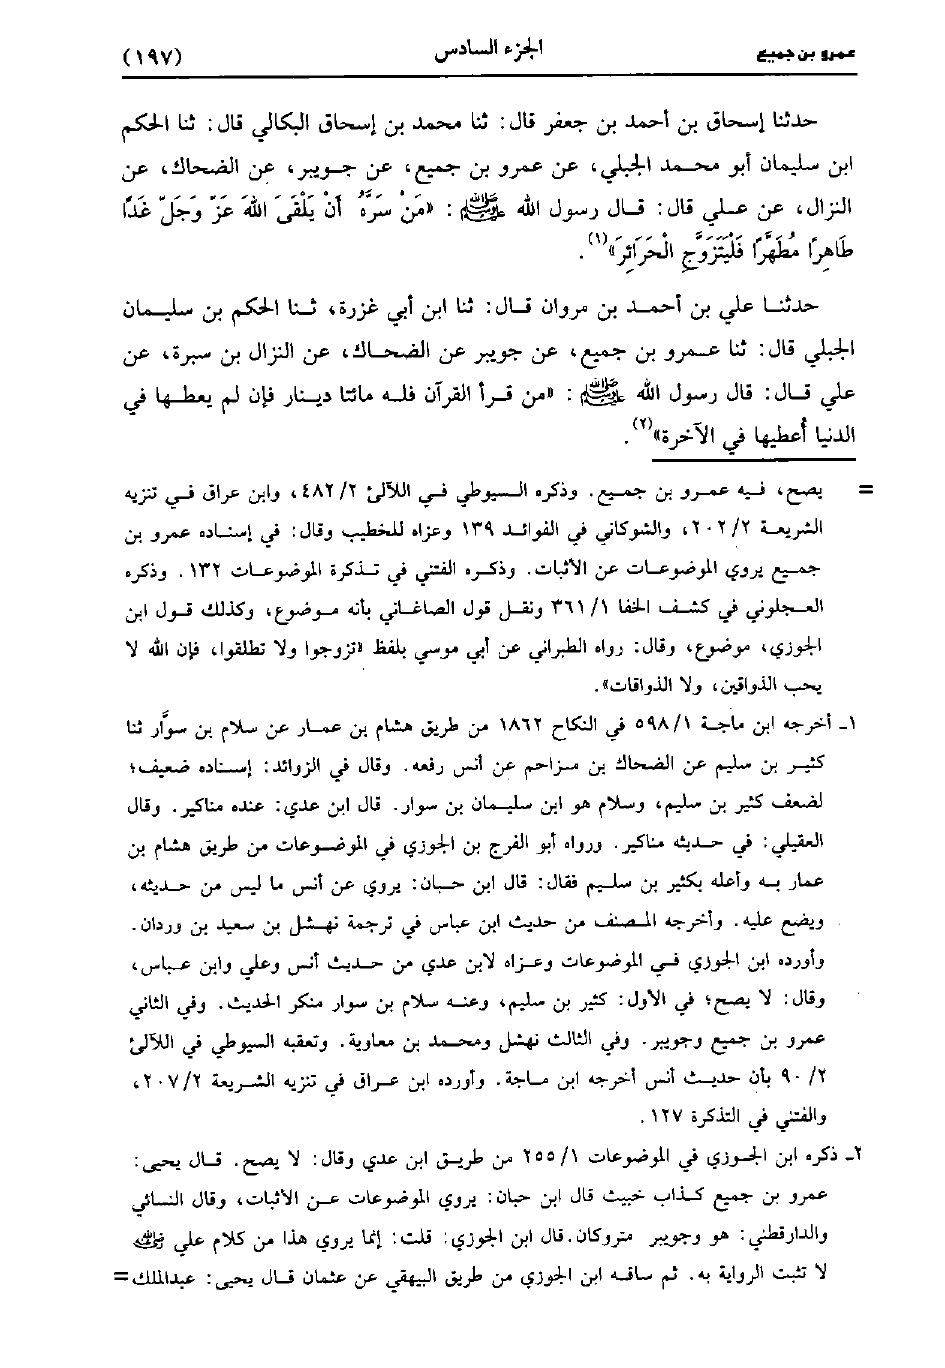 عمرو بن جميع الجزء السادس (١٩٧)
حدثنا إسحاق بن أحمد بن جعفر قال: ثنا محمد بن إسحاق البكالي قال: ثنا الحكم
ابن سليمان أبو محمد الجبلي، عن عمرو بن جميع، عن جويبر، عن الضحاك، عن
النزال، عن علي قال: قال رسول الله ﷺ: «مَنْ سَرَّهُ أَنْ يَلْقَى اللهَ عَزَّ وَجَلَّ غَدًا
طَاهِرًا مُطَهَّرًا فَلْيَتَزَوَّجِ الْحَرَائِرَ»(١).
حدثنا علي بن أحمد بن مروان قال: ثنا ابن أبي غزرة، ثنا الحكم بن سليمان
الجبلي قال: ثنا عمرو بن جميع، عن جويبر عن الضحاك، عن النزال بن سبرة، عن
علي قال: قال رسول الله ﷺ: «من قرأ القرآن فله مائتا دينار فإن لم يعطها في
الدنيا أعطيها في الآخرة»(٢).
= يصح، فيه عمرو بن جميع. وذكره السيوطي في اللآلئ ٤٨٢/٢، وابن عراق في تنزيه
الشريعة ٢٠٢/٢، والشوكاني في الفوائد ١٣٩ وعزاه للخطيب وقال: في إسناده عمرو بن
جميع يروي الموضوعات عن الأثبات. وذكره الفتني في تذكرة الموضوعات ١٣٢. وذكره
العجلوني في كشف الخفا ٣٦١/١ ونقل قول الصاغاني بأنه موضوع، وكذلك قول ابن
الجوزي، موضوع، وقال: رواه الطبراني عن أبي موسي بلفظ «تزوجوا ولا تطلقوا، فإن الله لا
يحب الذواقين، ولا الذواقات».
١ـ أخرجه ابن ماجة ٥٩٨/١ في النكاح ١٨٦٢ من طريق هشام بن عمار عن سلام بن سوَّار ثنا
كثير بن سليم عن الضحاك بن مزاحم عن أنس رفعه. وقال في الزوائد: إسناده ضعيف؛
لضعف كثير بن سليم، وسلام هو ابن سليمان بن سوار. قال ابن عدي: عنده مناكير. وقال
العقيلي: في حديثه مناكير. ورواه أبو الفرج بن الجوزي في الموضوعات من طريق هشام بن
عمار به وأعله بكثير بن سليم فقال: قال ابن حبان: يروي عن أنس ما ليس من حديثه،
ويضع عليه. وأخرجه المصنف من حديث ابن عباس في ترجمة نهشل بن سعيد بن وردان.
وأورده ابن الجوزي في الموضوعات وعزاه لابن عدي من حديث أنس وعلي وابن عباس،
وقال: لا يصح؛ في الأول: كثير بن سليم، وعنه سلام بن سوار منكر الحديث. وفي الثاني
عمرو بن جميع وجويبر. وفي الثالث نهشل ومحمد بن معاوية. وتعقبه السيوطي في اللآلئ
٩٠/٢ بأن حديث أنس أخرجه ابن ماجة. وأورده ابن عراق في تنزيه الشريعة ٢٠٧/٢،
والفتني في التذكرة ١٢٧.
٢ـ ذكره ابن الجوزي في الموضوعات ٢٥٥/١ من طريق ابن عدي وقال: لا يصح. قال يحيى:
عمرو بن جميع كذاب خبيث قال ابن حبان: يروي الموضوعات عن الأثبات، وقال النسائي
والدارقطني: هو وجويبر متروكان. قال ابن الجوزي: قلت: إنما يروي هذا من كلام علي رضي الله عنه
لا تثبت الرواية به. ثم ساقه ابن الجوزي من طريق البيهقي عن عثمان قال يحيى: عبدالملك =